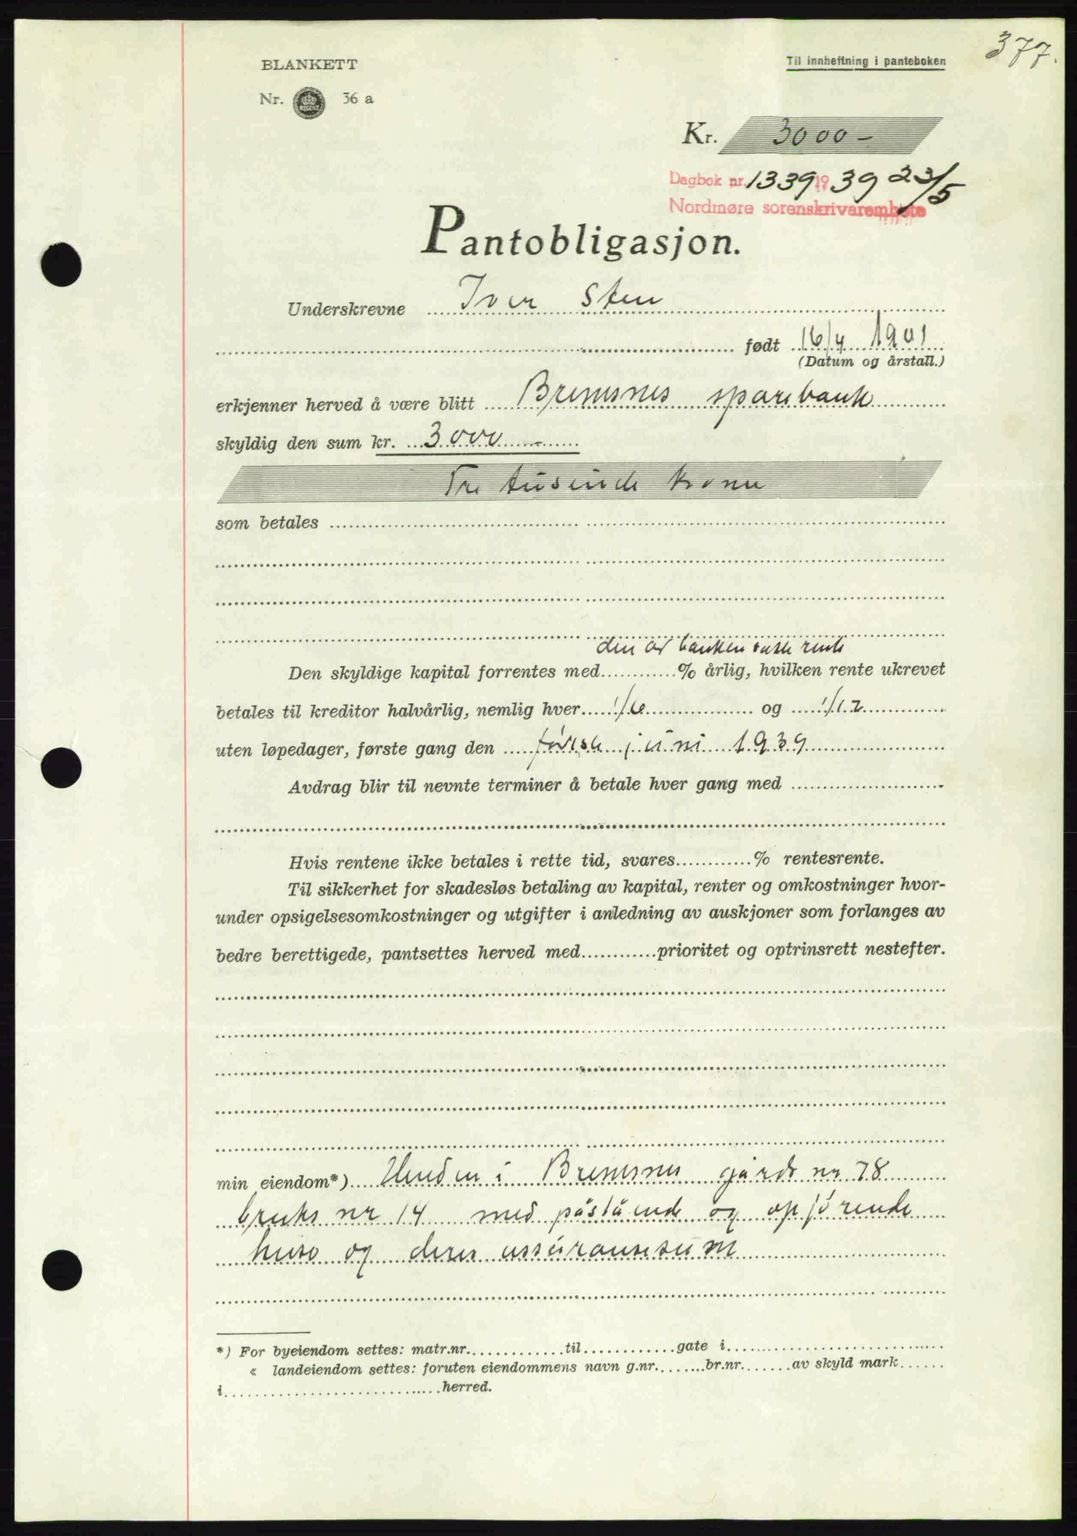 377.
BLANKETT
Til innheftning i panteboken
Nr. 36 a
Kr. 3000 –
Dagbok nr. 1339 19 39 23/5
Nordmøre sorenskriverembete
Pantobligasjon.
Underskrevne Iver Sten
født 16/4 1901
(Datum og årstall.)
erkjenner herved å være blitt Bremsnes sparebank
skyldig den sum kr. 3000 –
Tre tusende kroner
som betales
den av banken rente
Den skyldige kapital forrentes med % årlig, hvilken rente ukrevet
betales til kreditor halvårlig, nemlig hver 1/6 og 1/12
uten løpedager, første gang den første juni 1939
Avdrag blir til nevnte terminer å betale hver gang med
Hvis rentene ikke betales i rette tid, svares % rentesrente.
Til sikkerhet for skadesløs betaling av kapital, renter og omkostninger hvor-
under opsigelsesomkostninger og utgifter i anledning av auskjoner som forlanges av
bedre berettigede, pantsettes herved med prioritet og optrinsrett nestefter.
min eiendom*) i Bremsnes gårds nr 78
bruks nr 14 med påstående og opførende
huse og deres assuransesum
*) For byeiendom settes: matr.nr. til gate i
« landeiendom settes: foruten eiendommens navn g.nr. br.nr. av skyld mark
i herred.